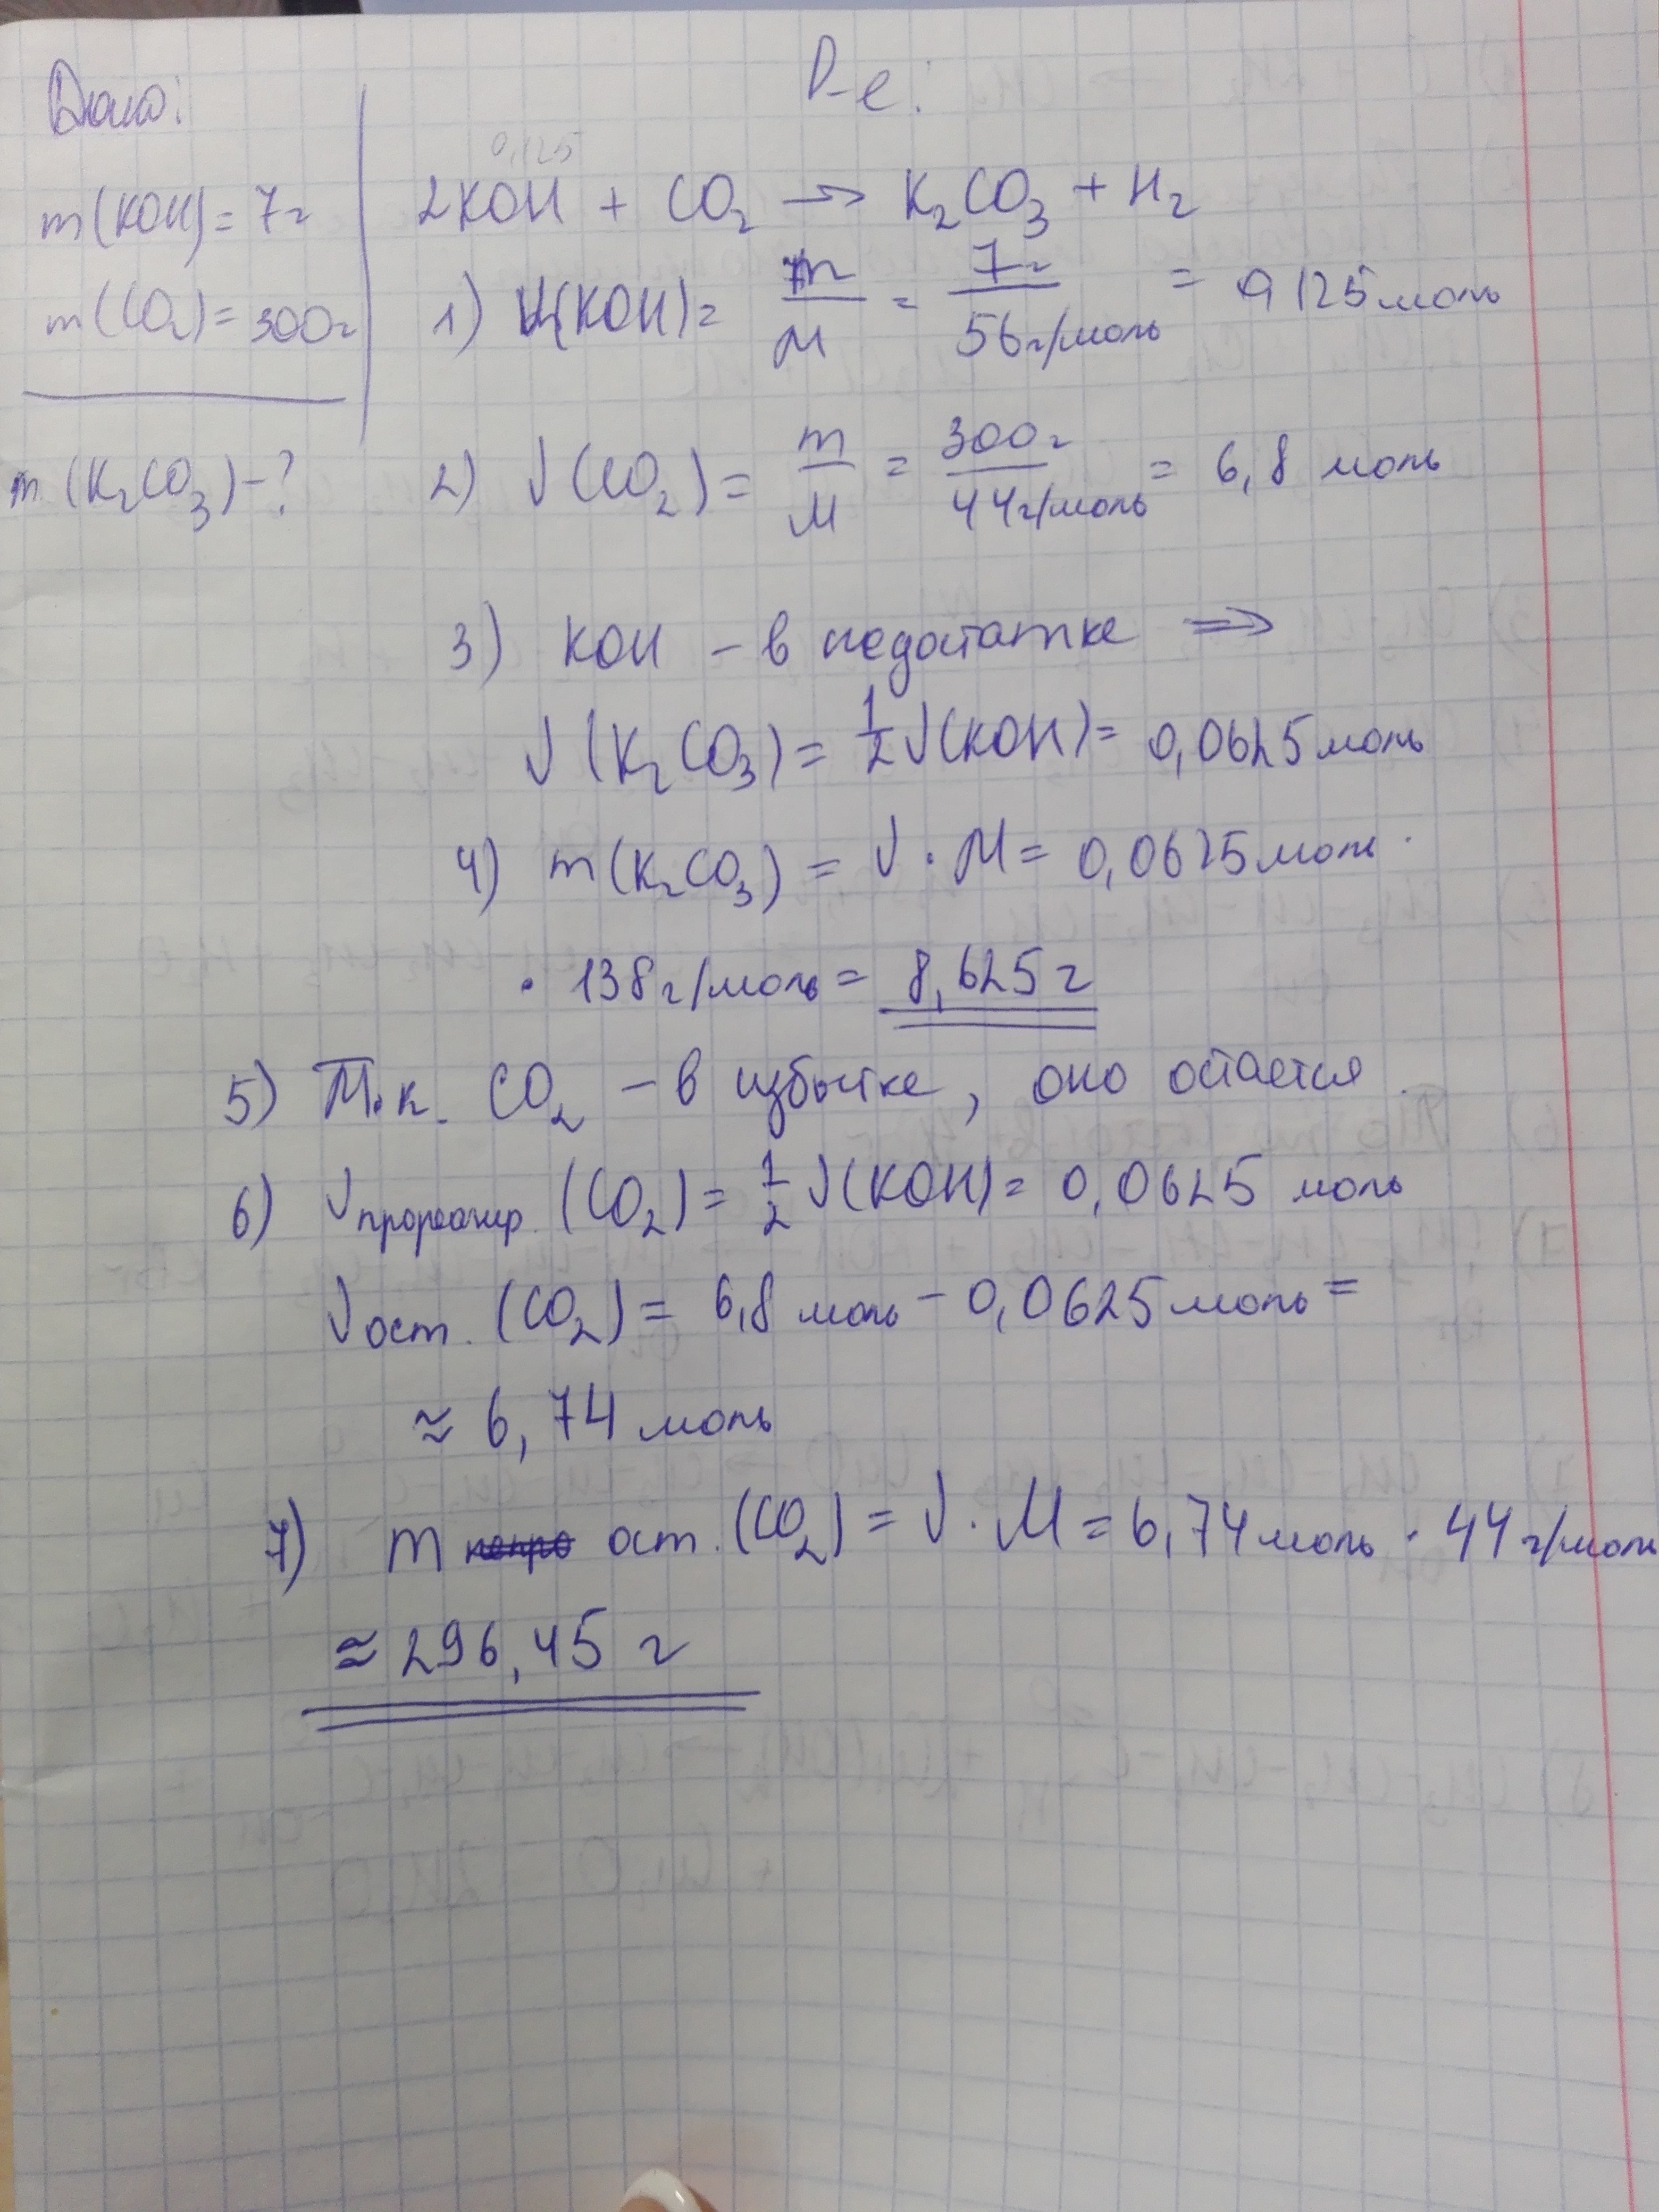 Дано:
m(KOH)= 7г
m(CO2)= 300г
m(K2CO3)-?
Р-е:
0,125
2KOH + CO2 → K2CO3 + H2
1) ν(KOH)= m/M = 7г/56г/моль = 0,125моль
2) ν(CO2)= m/M = 300г/44г/моль = 6,8 моль
3) KOH – в недостатке ⇒
ν(K2CO3)= 1/2 ν(KOH)= 0,0625моль
4) m(K2CO3) = ν · M = 0,0625моль ·
· 138г/моль = 8,625г
5) Т.к. CO2 – в избытке, оно остается
6) νпрореагир. (CO2)= 1/2 ν(KOH)= 0,0625 моль
νост. (CO2)= 6,8 моль – 0,0625моль =
≈ 6,74 моль
7) m ост. (CO2) = ν · M = 6,74моль · 44г/моль
≈ 296,45 г